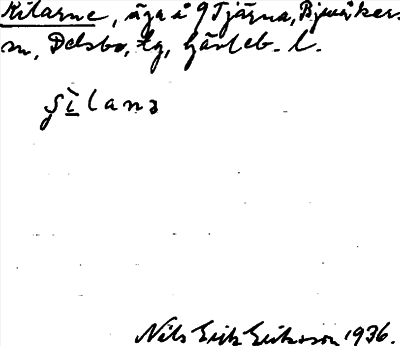 Kilarne, äga i 9 Tjärna, Bjuråkers
sn, Delsbo, tg, Gävleb. l.
gìlanɜ
Nils Erik Eriksson 1936.